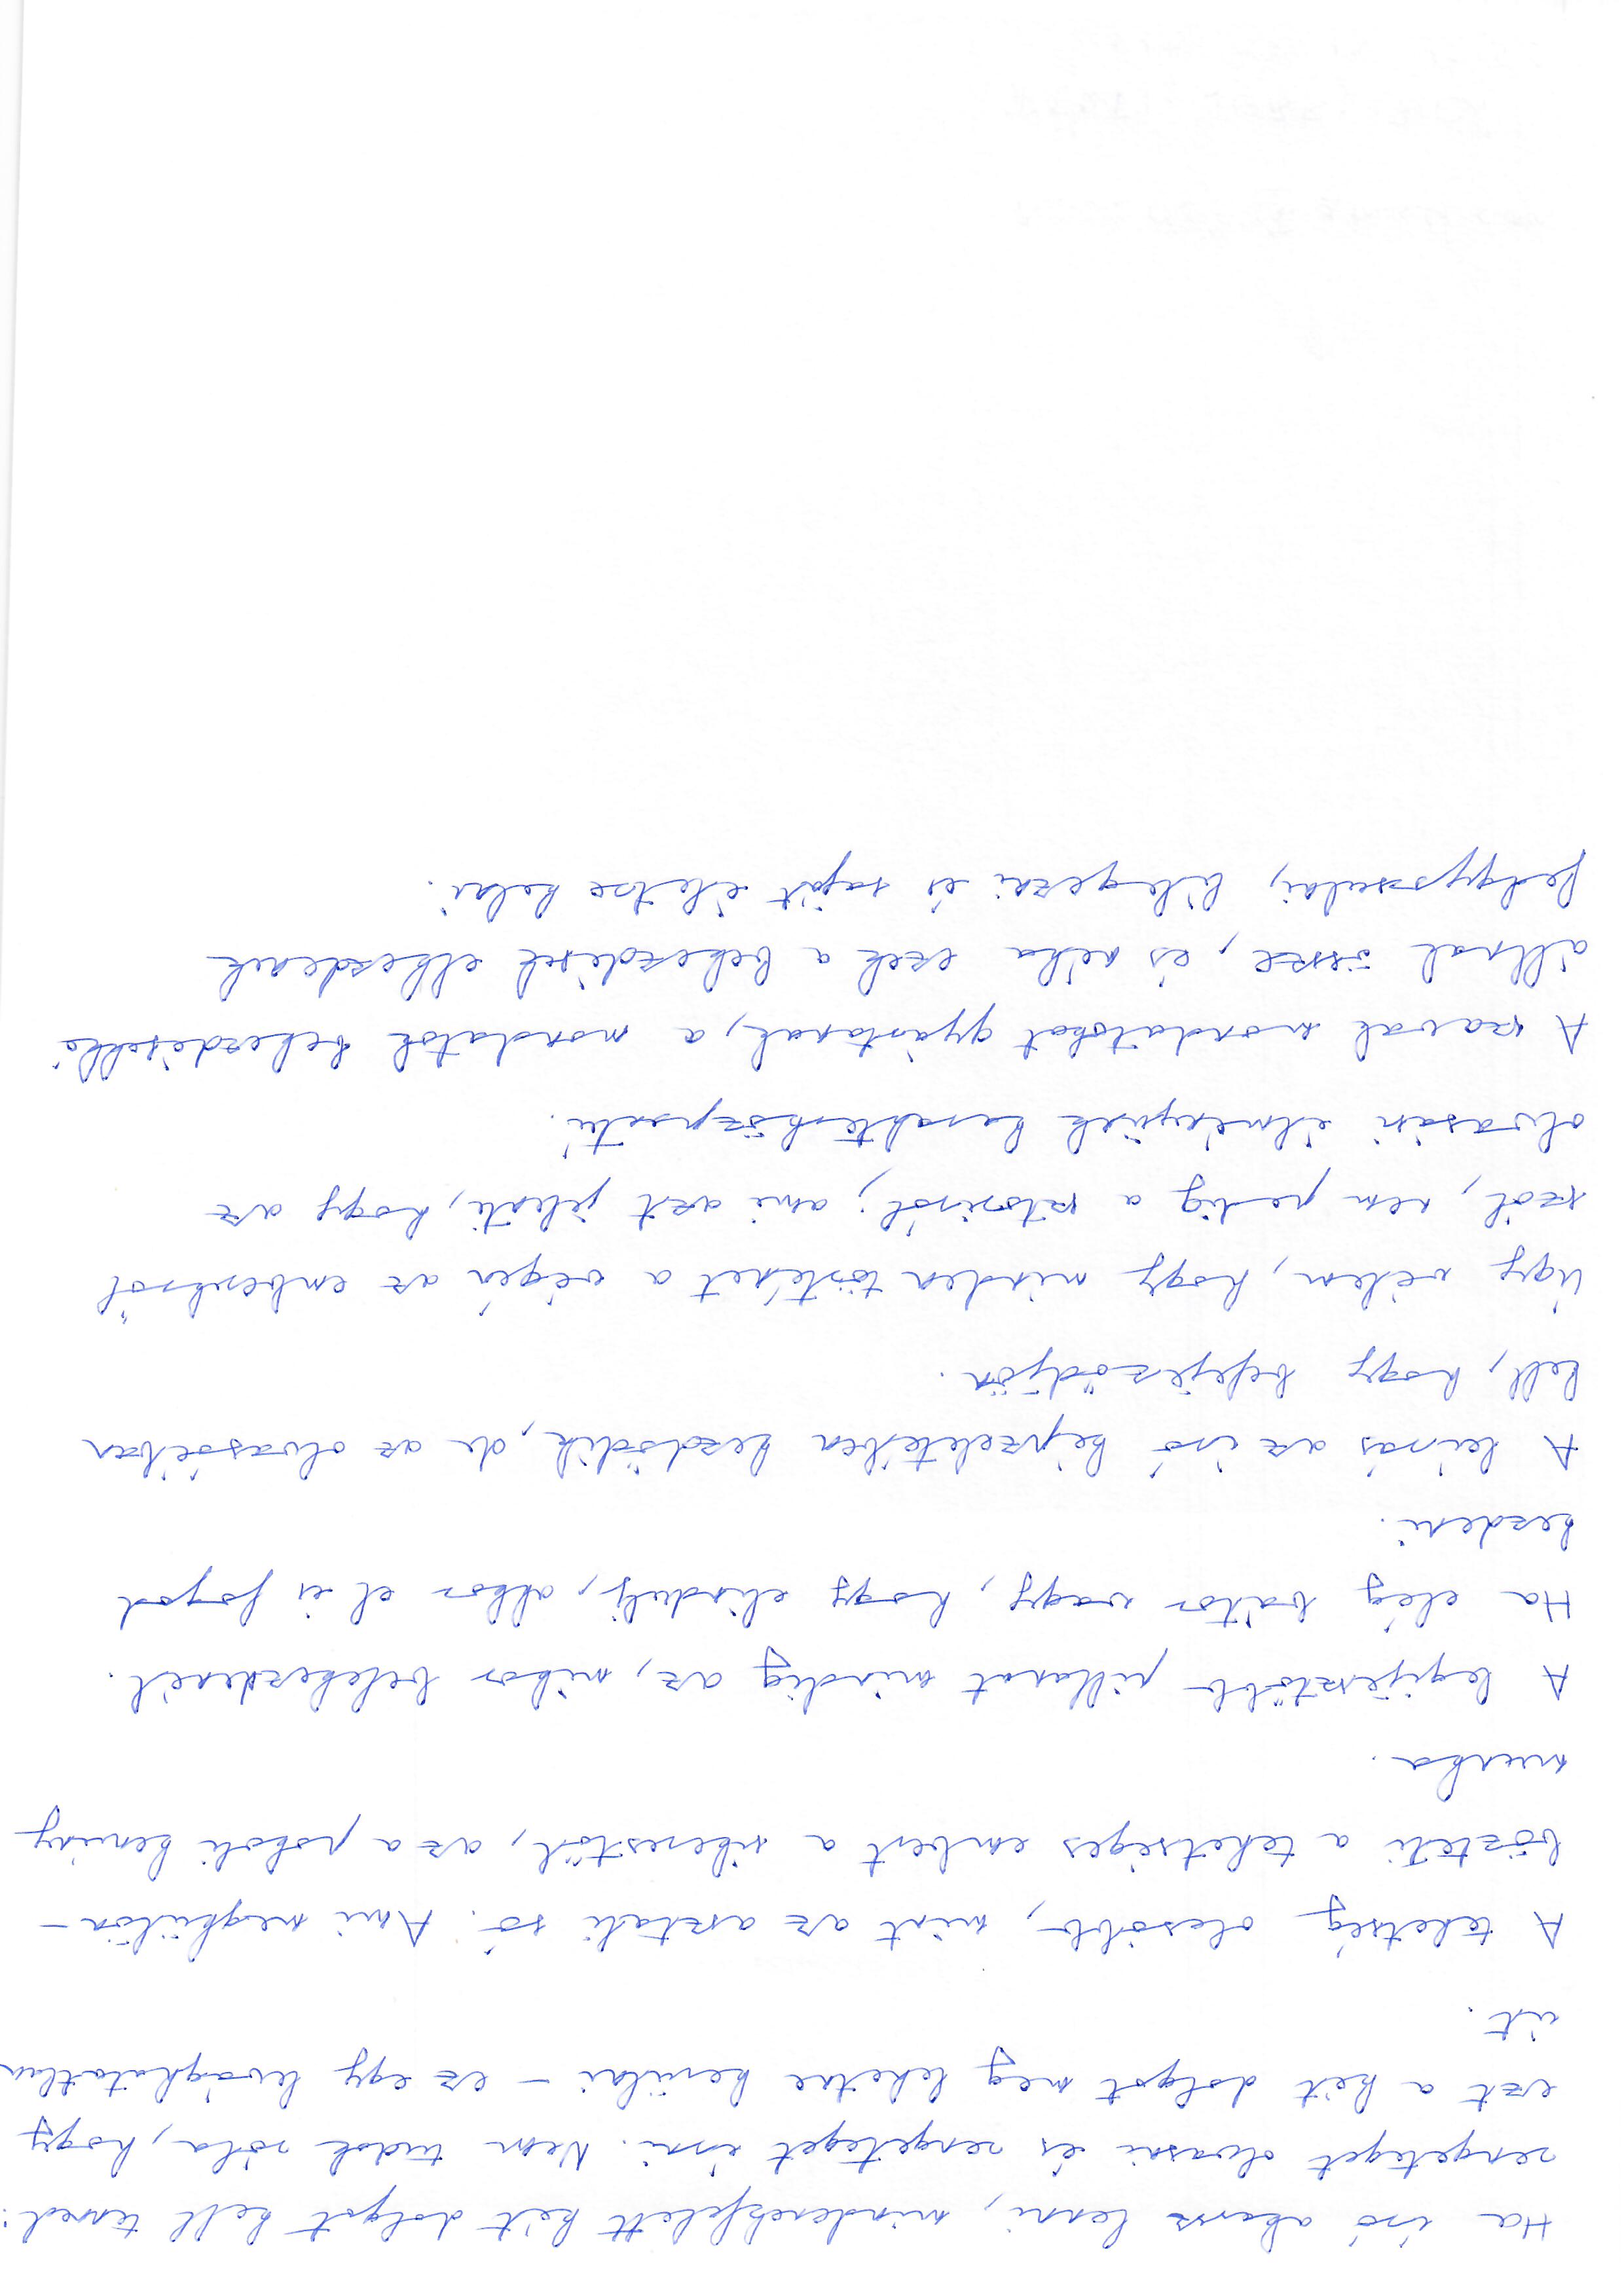 Ha író akarsz lenni, mindenekfelett két dolgot kell tenned:
rengeteget olvasni és rengeteget írni. Nem tudok róla, hogy
ezt a két dolgot meg lehetne kerülni – ez egy levághatatlan
út.
A tehetség olcsóbb, mint az asztali só. Ami megkülön-
bözteti a tehetséges embert a sikerestől, az a pokoli kemény
munka.
A legijesztőbb pillanat mindig az, mikor belekezdenél.
Ha elég bátor vagy, hogy elindulj, akkor el is fogod
kezdeni.
A leírás az író képzeletében kezdődik, de az olvasóéban
kell, hogy befejeződjön.
Úgy vélem, hogy minden történet a végén az emberekről
szól, nem pedig a sztoriról; ami azt jelenti, hogy az
olvasási élményünk karakterközpontú.
A szavak mondatokat gyártanak, a mondatok bekezdésekké
állnak össze, és néha ezek a bekezdések elkezdenek
felgyorsulni, lélegezni és saját életre kelni.